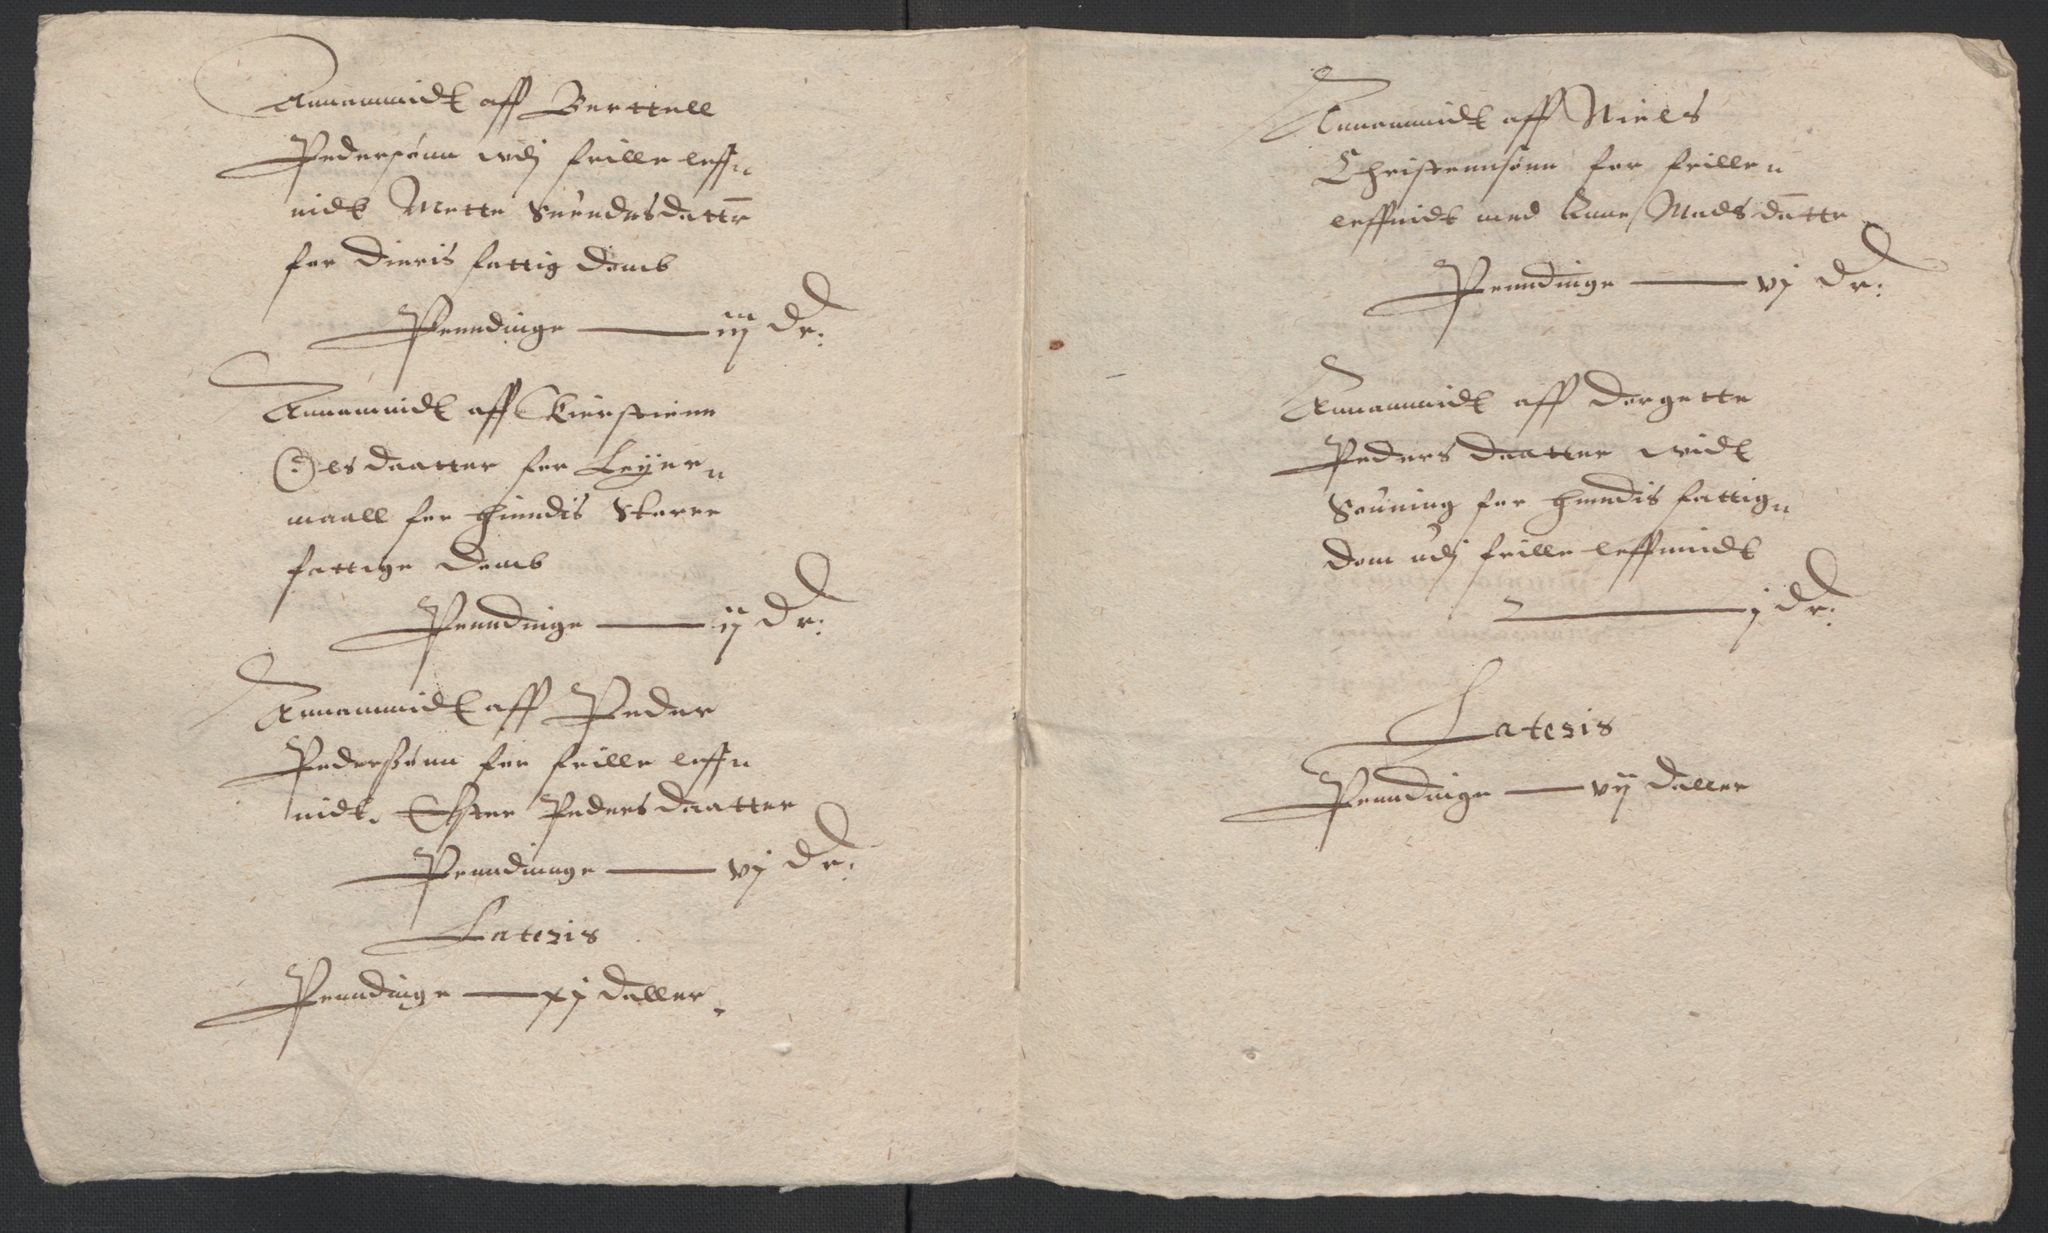 Annammidt aff Berttell
Pedersønn udj frille leff-
nidt Mette Suendsdatter
for dieris fattig domb
Penndinge — iij dr:
Annammidt aff Kierstinn
Olsdaatter for Leyer-
maall for hiendis Store
fattige domb
Penndinge — ij dr:
Annammidt aff Peder
Pedersønn for frille leff-
nidt. Ester Pedersdaatter
Penndinge — vj dr:
Lateris
Penndinge — xj daller.
Annammidt aff Niels
Christennsønn for frille-
leffnidt med Anne Madsdatte
Penndinge — vj dr:
Annammidt aff dorgette
Peders daatter widt
for hiendis fattig-
dom udj frille leffnnidt
— j dr:
Lateris
Penndinge — vij daller